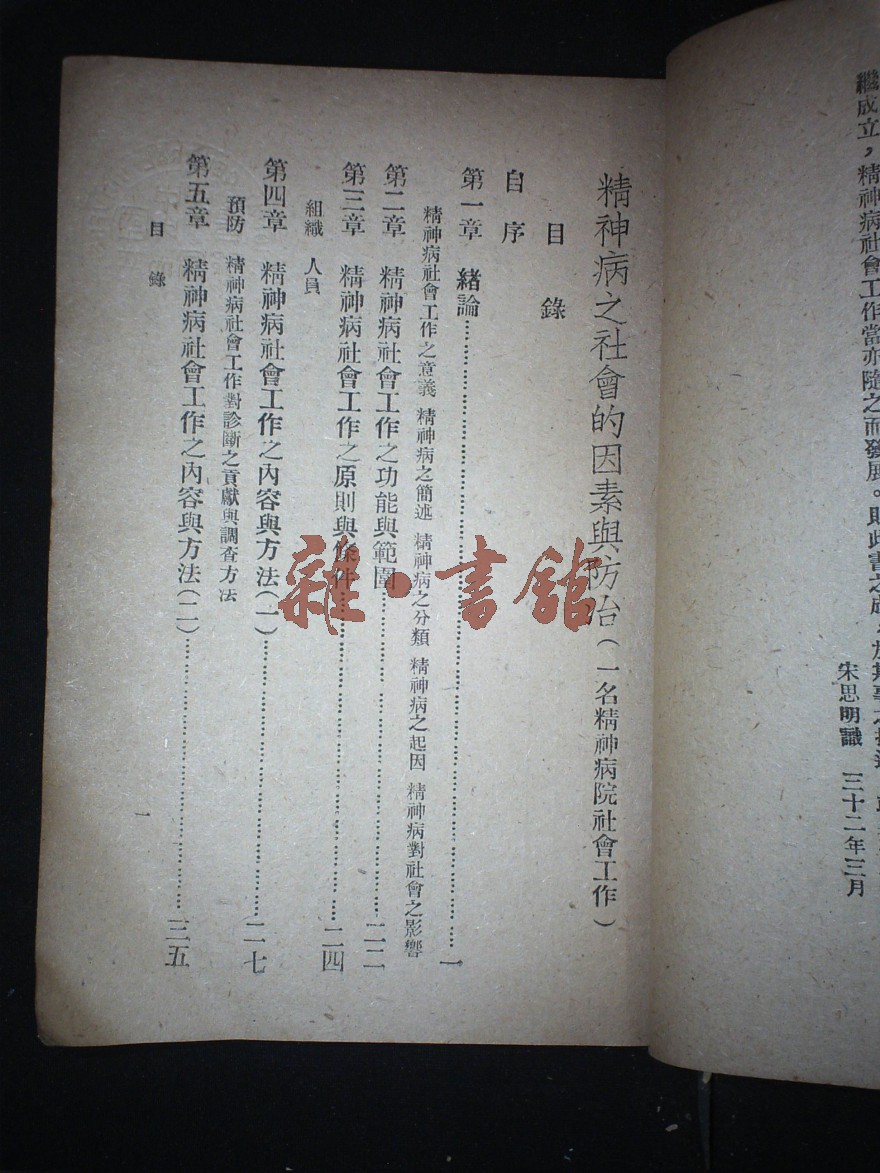 繼成立，精神病社會工作當亦隨之而發展。則此書之成，於其事之推進
宋思明識 三十二年三月
精神病之社會的因素與防治（一名精神病院社會工作）
目 錄
自 序
第一章 緒論…………一
精神病社會工作之意義 精神病之簡述 精神病之分類 精神病之起因 精神病對社會之影響
第二章 精神病社會工作之功能與範圍…………二二
第三章 精神病社會工作之原則與條件…………二四
組織 人員
第四章 精神病社會工作之內容與方法（一）…………二七
預防 精神病社會工作對診斷之貢獻與調查方法
第五章 精神病社會工作之內容與方法（二）…………三五
目 錄
一
雜·書館